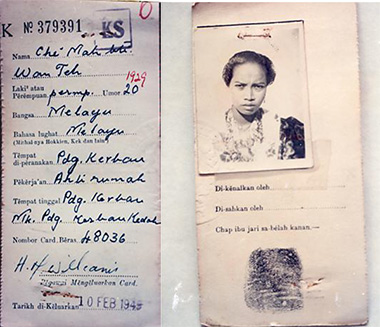 K Nº 379391 KS
Nama Che' Mah bt.
Wan Teh
Laki² atau
Perempuan permp. Umor 20
1929
Bangsa Melayu
Bahasa lughat Melayu
(Misal nya Hokkien, Kek dan lain)
Tempat
di-peranakan Pdg. Kerbau
Pekerja'an Ahli rumah
Tempat tinggal Pdg. Kerbau
Mk. Pdg. Kerbau Kedah
Nombor Card Bĕras 48036
Mengeluarkan Card.
Tarikh di-Keluarkan 10 FEB 194
Di-kĕnalkan oleh
Di-sahkan oleh
Chap ibu jari sa-bĕlah kanan.—